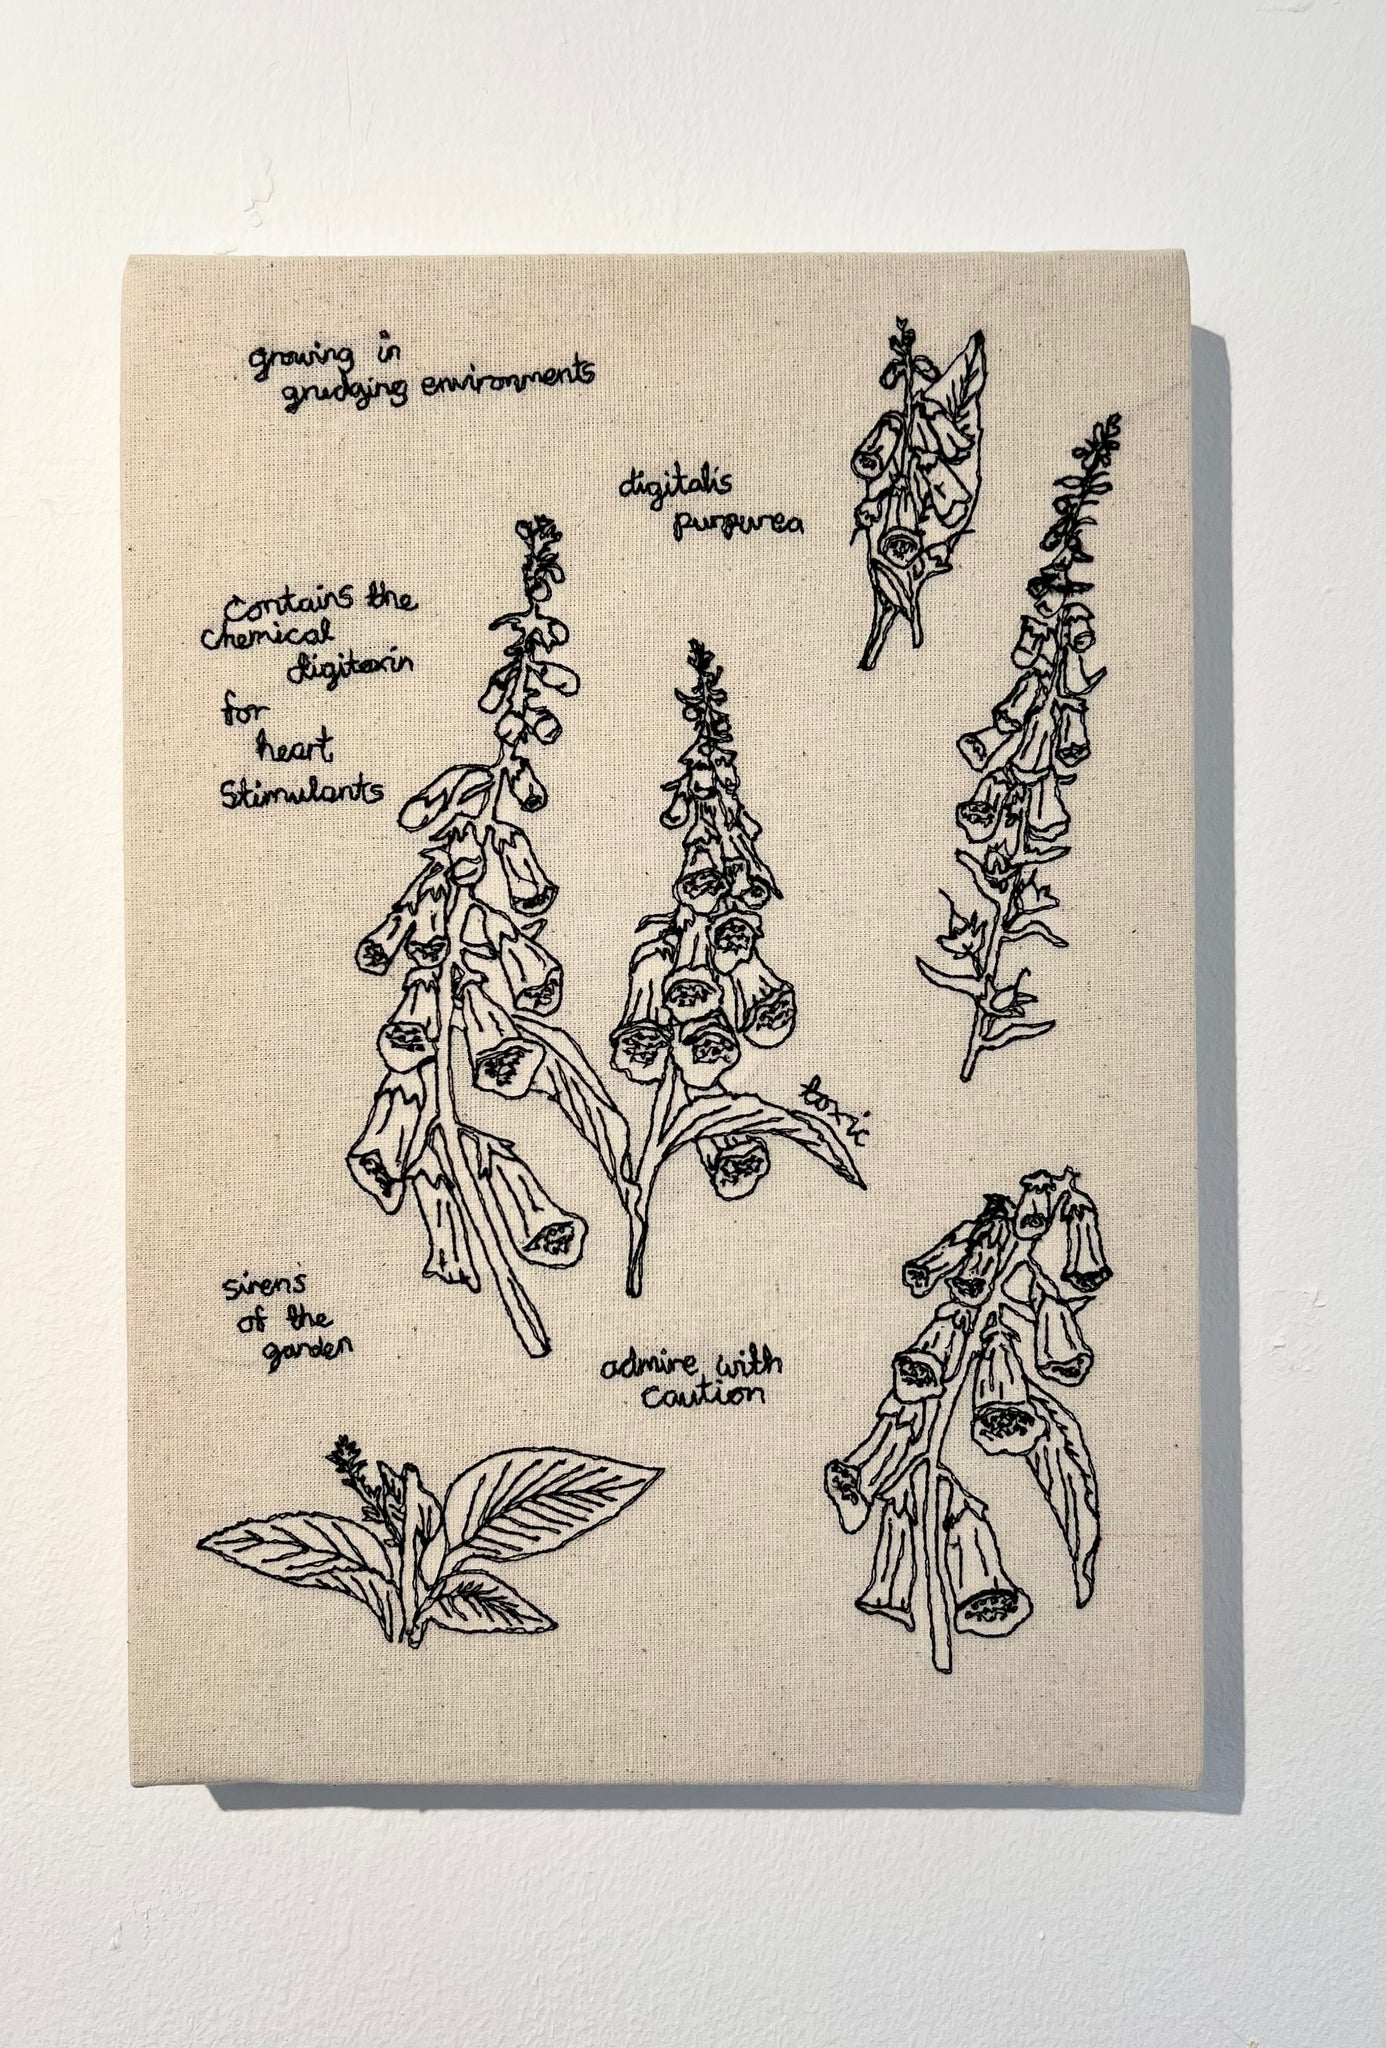 growing in
grudging environments
digitalis
purpurea
Contains the
chemical
digitoxin
for
heart
Stimulants
toxic
siren's
of the
garden
admire with
caution